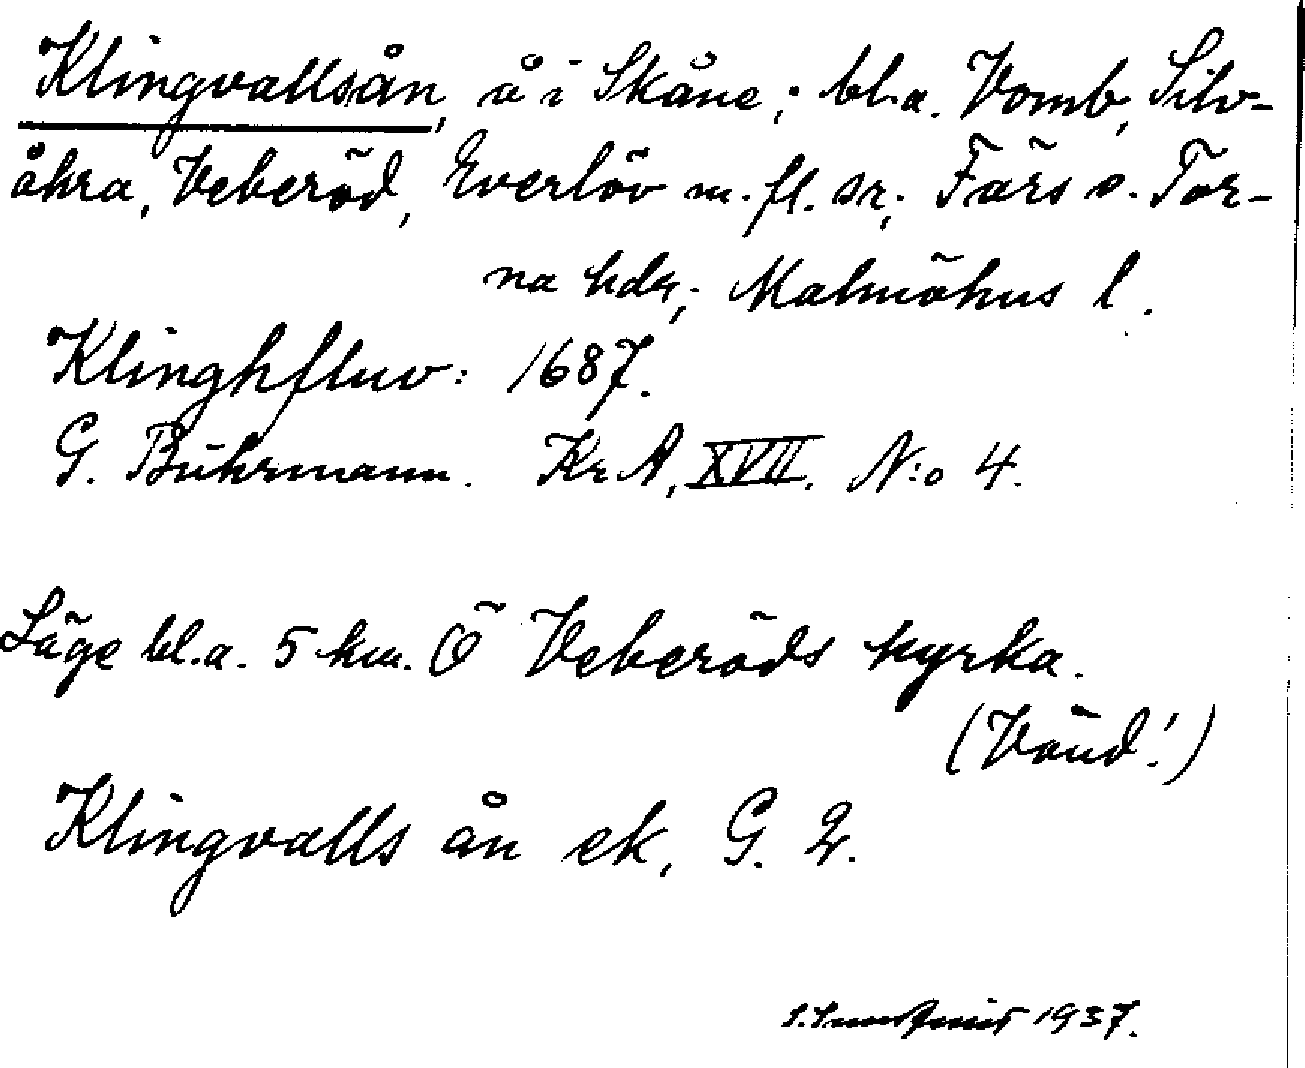 Klingvallsån, å i Skåne; bl.a. Vomb, Silv-
åkra, Veberöd, Everlöv m.fl. sr; Färs o. Tor-
na hdr; Malmöhus l.
Klinghfluv: 1687.
G. Buhrmann. Kr A, XVII. N:o 4.
Läge bl.a. 5 km. Ö Veberöds kyrka.
(Vänd!)
Klingvalls ån ek, G. 2.
1937.